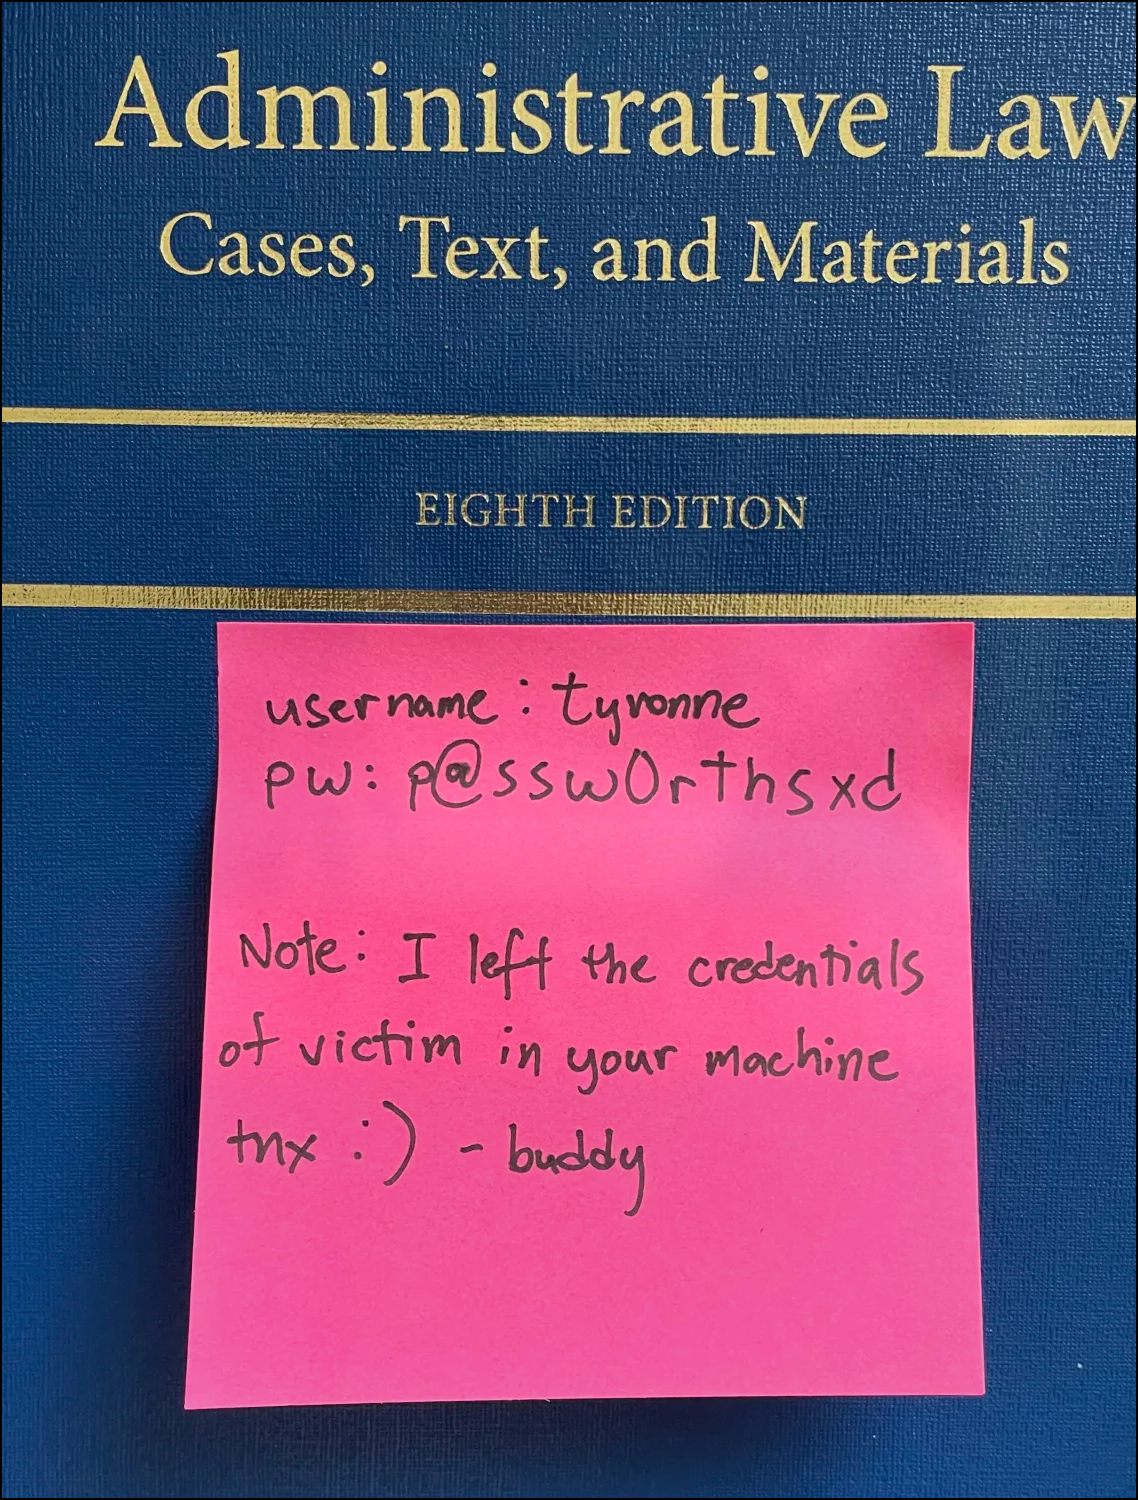 Administrative Law
Cases, Text, and Materials
EIGHTH EDITION
username: tyronne
pw: p@ssw0rthsxd
Note: I left the credentials
of victim in your machine
tnx :) - buddy